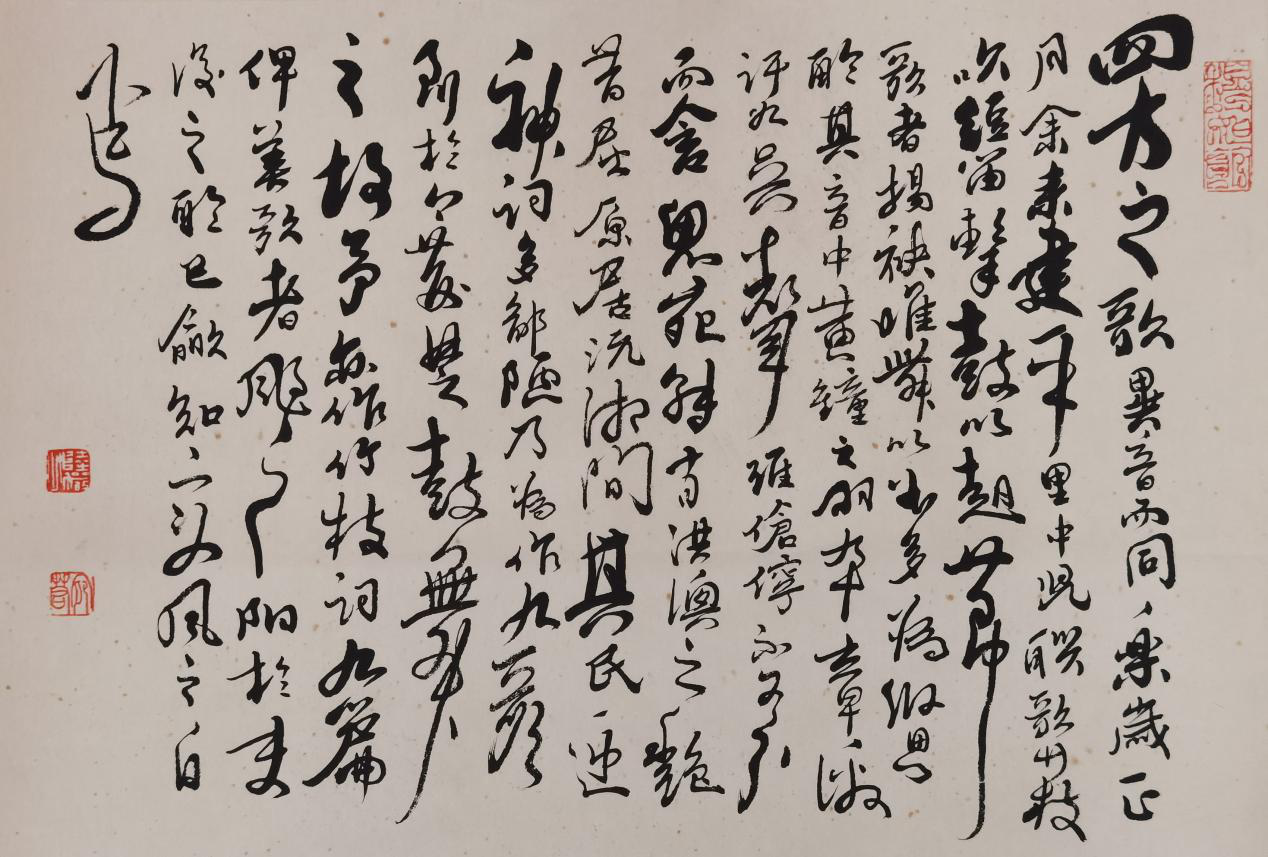 四方之歌異音而同樂歲正
月余來建平里中兒聯歌竹枝
吹短笛擊鼓以赴節
歌者揚袂睢舞以曲多為思
聆其音中黃鐘之羽卒章激
訐如吳聲雖傖儜不可分
而含思宛轉有淇澳之艷
昔屈原居沅湘間其民迎
神詞多鄙陋乃為作九歌
到於今荊楚鼓舞
之故予亦作竹枝詞九篇
俾善歌者颺之附於末
後之聆巴歈知變風之自
焉